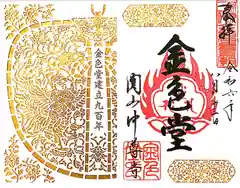 奉拝
令和六年
八月三日
金色堂
関山中尊寺
金色堂建立九百年